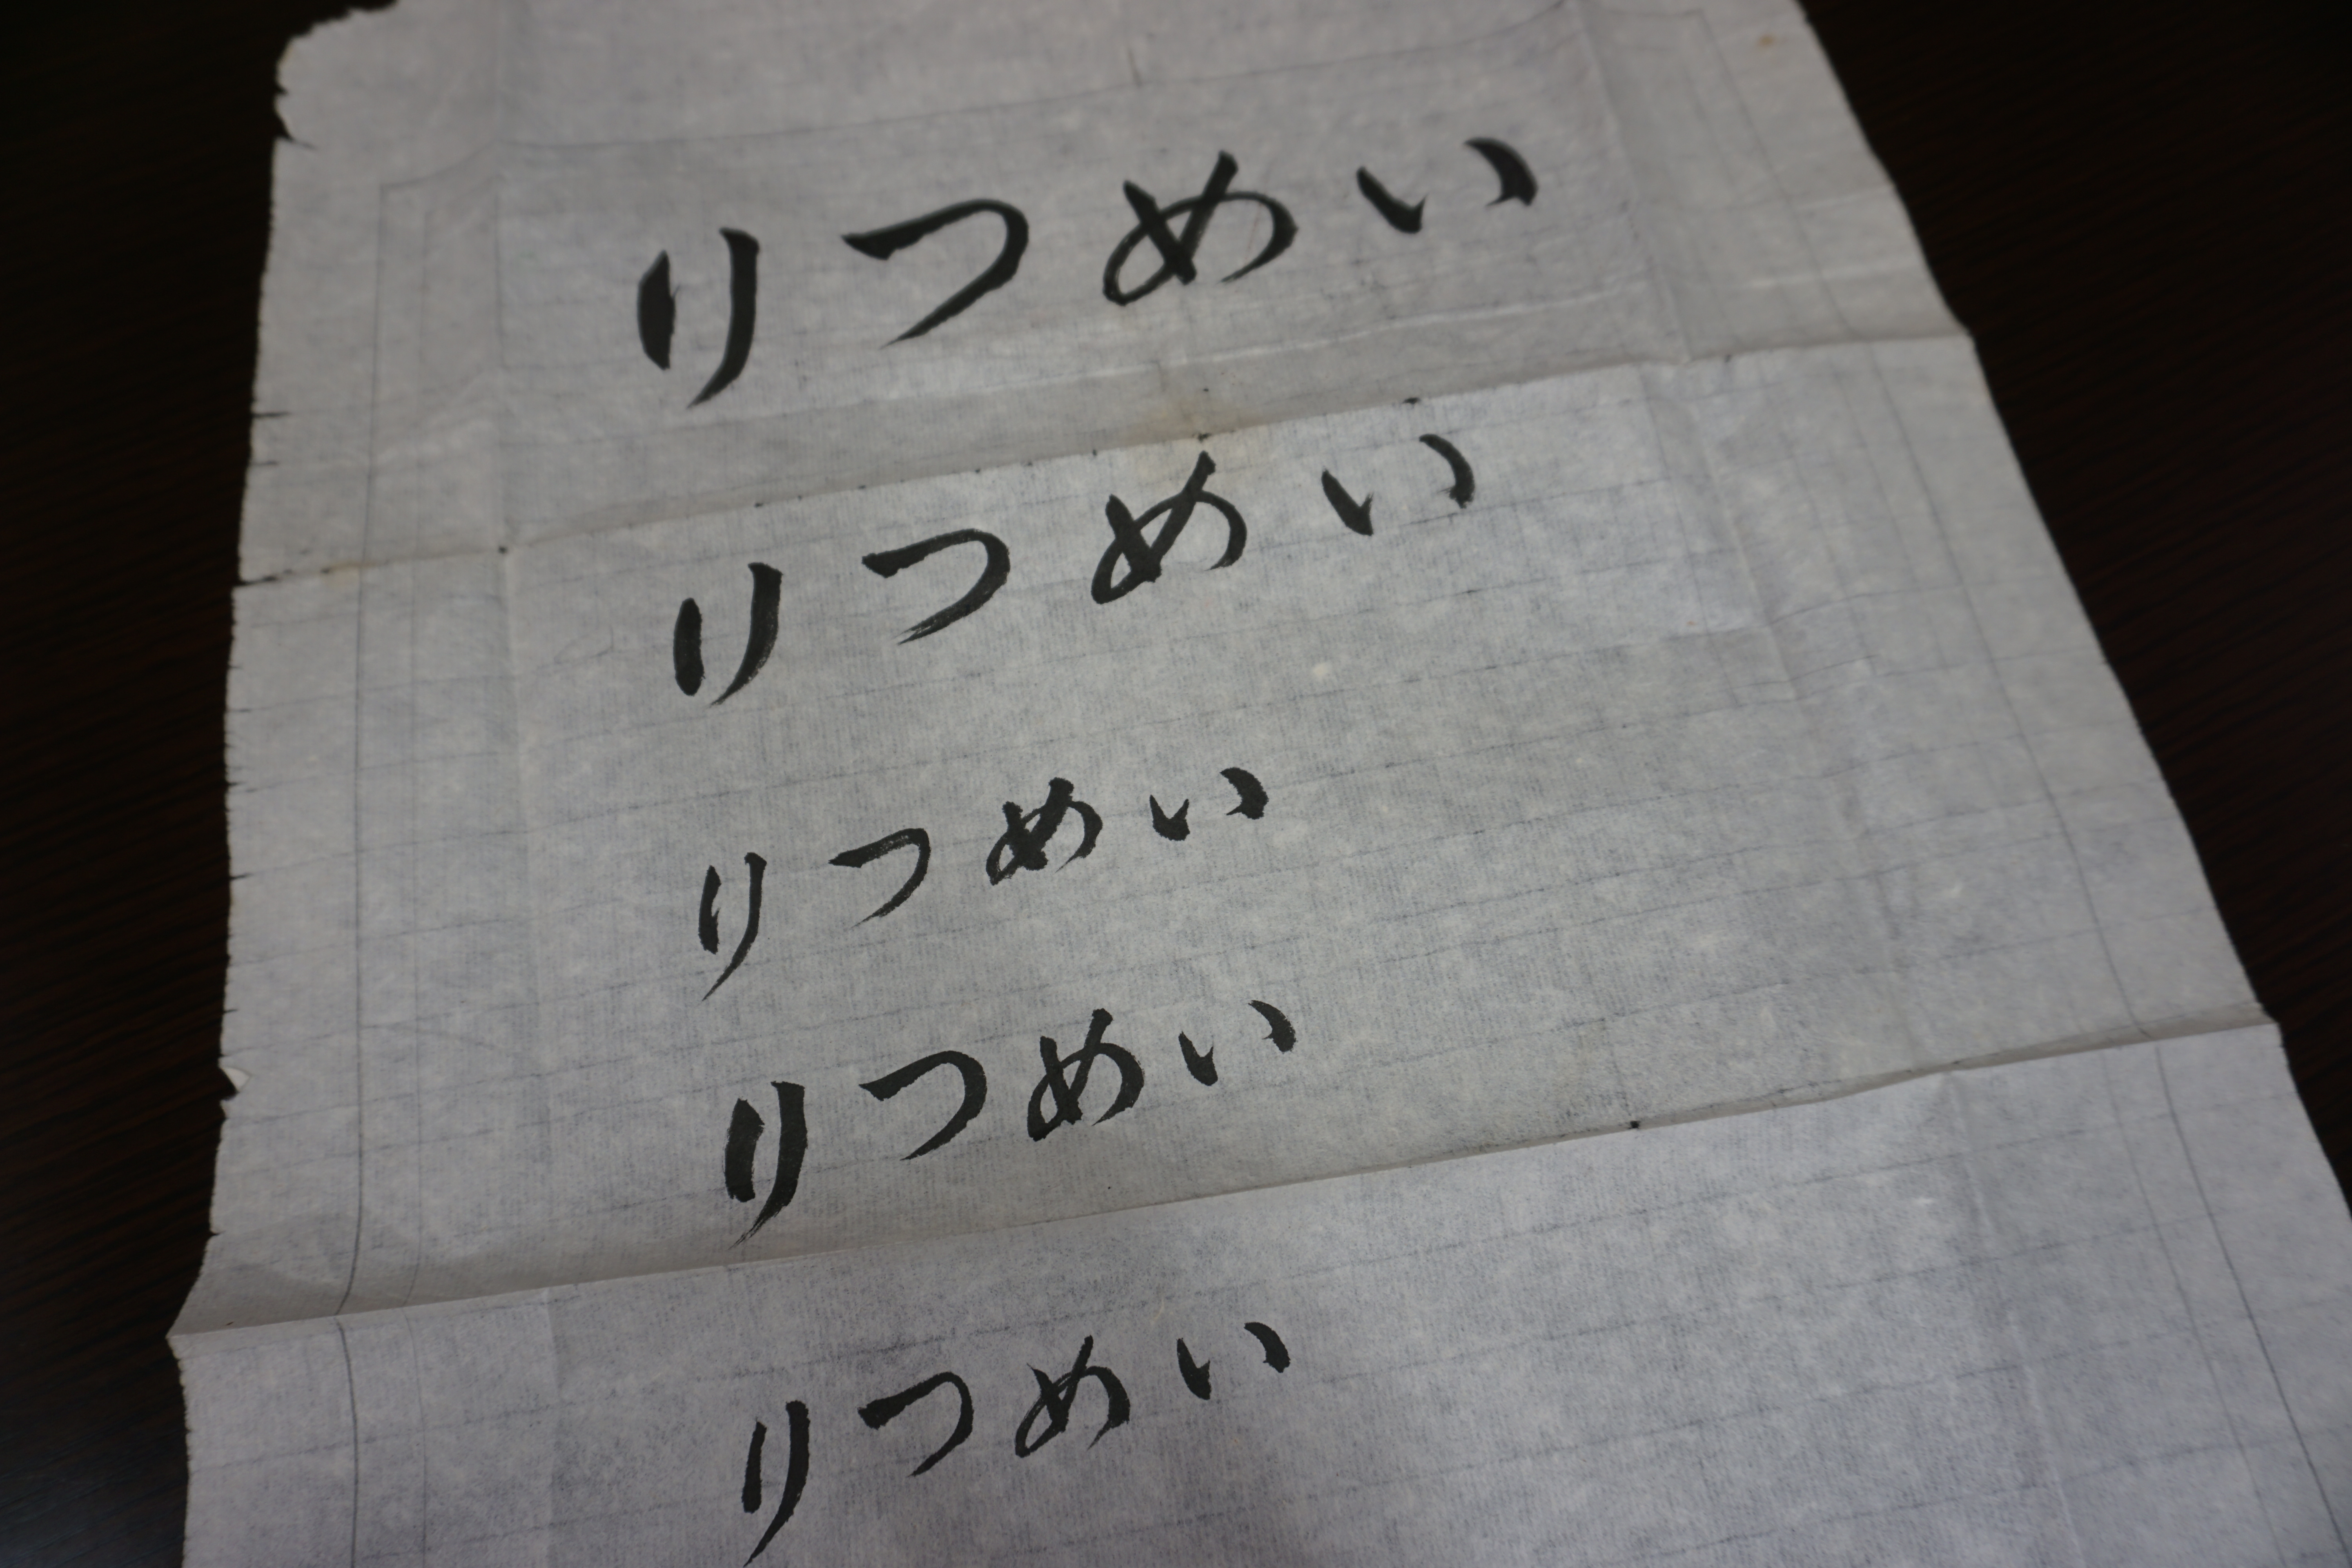 りつめい
りつめい
りつめい
りつめい
りつめい